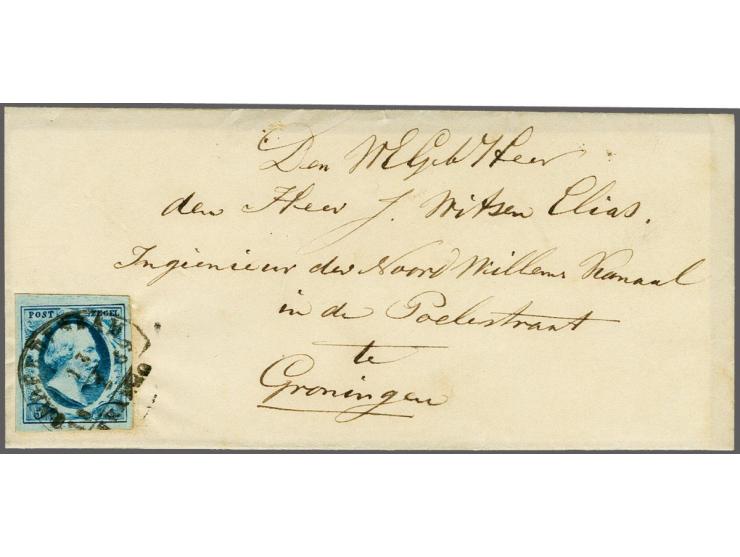 Den WEGeb Heer
den Heer J. Witsen Elias.
Ingenieur des Noord Willems Kanaal
in de Poelestraat
te
Groningen
POST ZEGEL
5